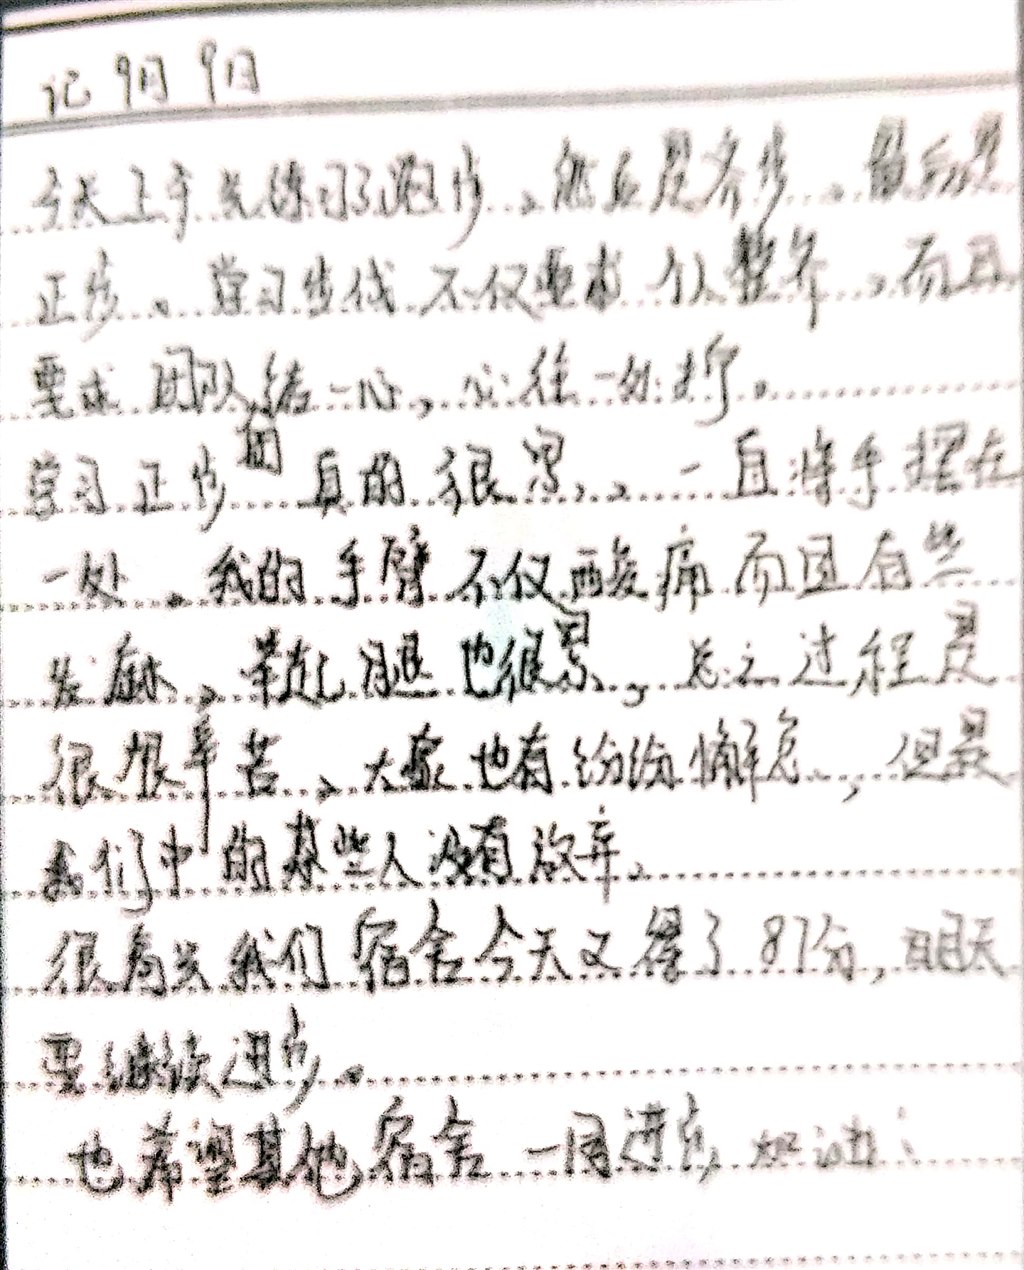 记9月9日
今天上午先练习了跑步、然后是齐步、最后是
正步。学习步伐不仅要求个人整齐、而且
要求团队结一心,心往一处拧。
学习正步的真的很累、一直将手摆在
一处、我的手臂不仅酸痛而且有些
发麻、带起腿也很累,总之过程是
很艰辛苦、大家也有纷纷懈怠、,但是
我们中的某些人没有放弃、
很高兴我们宿舍今天又得了87分,明天
要继续进步。
也希望其他宿舍一同进步,加油!